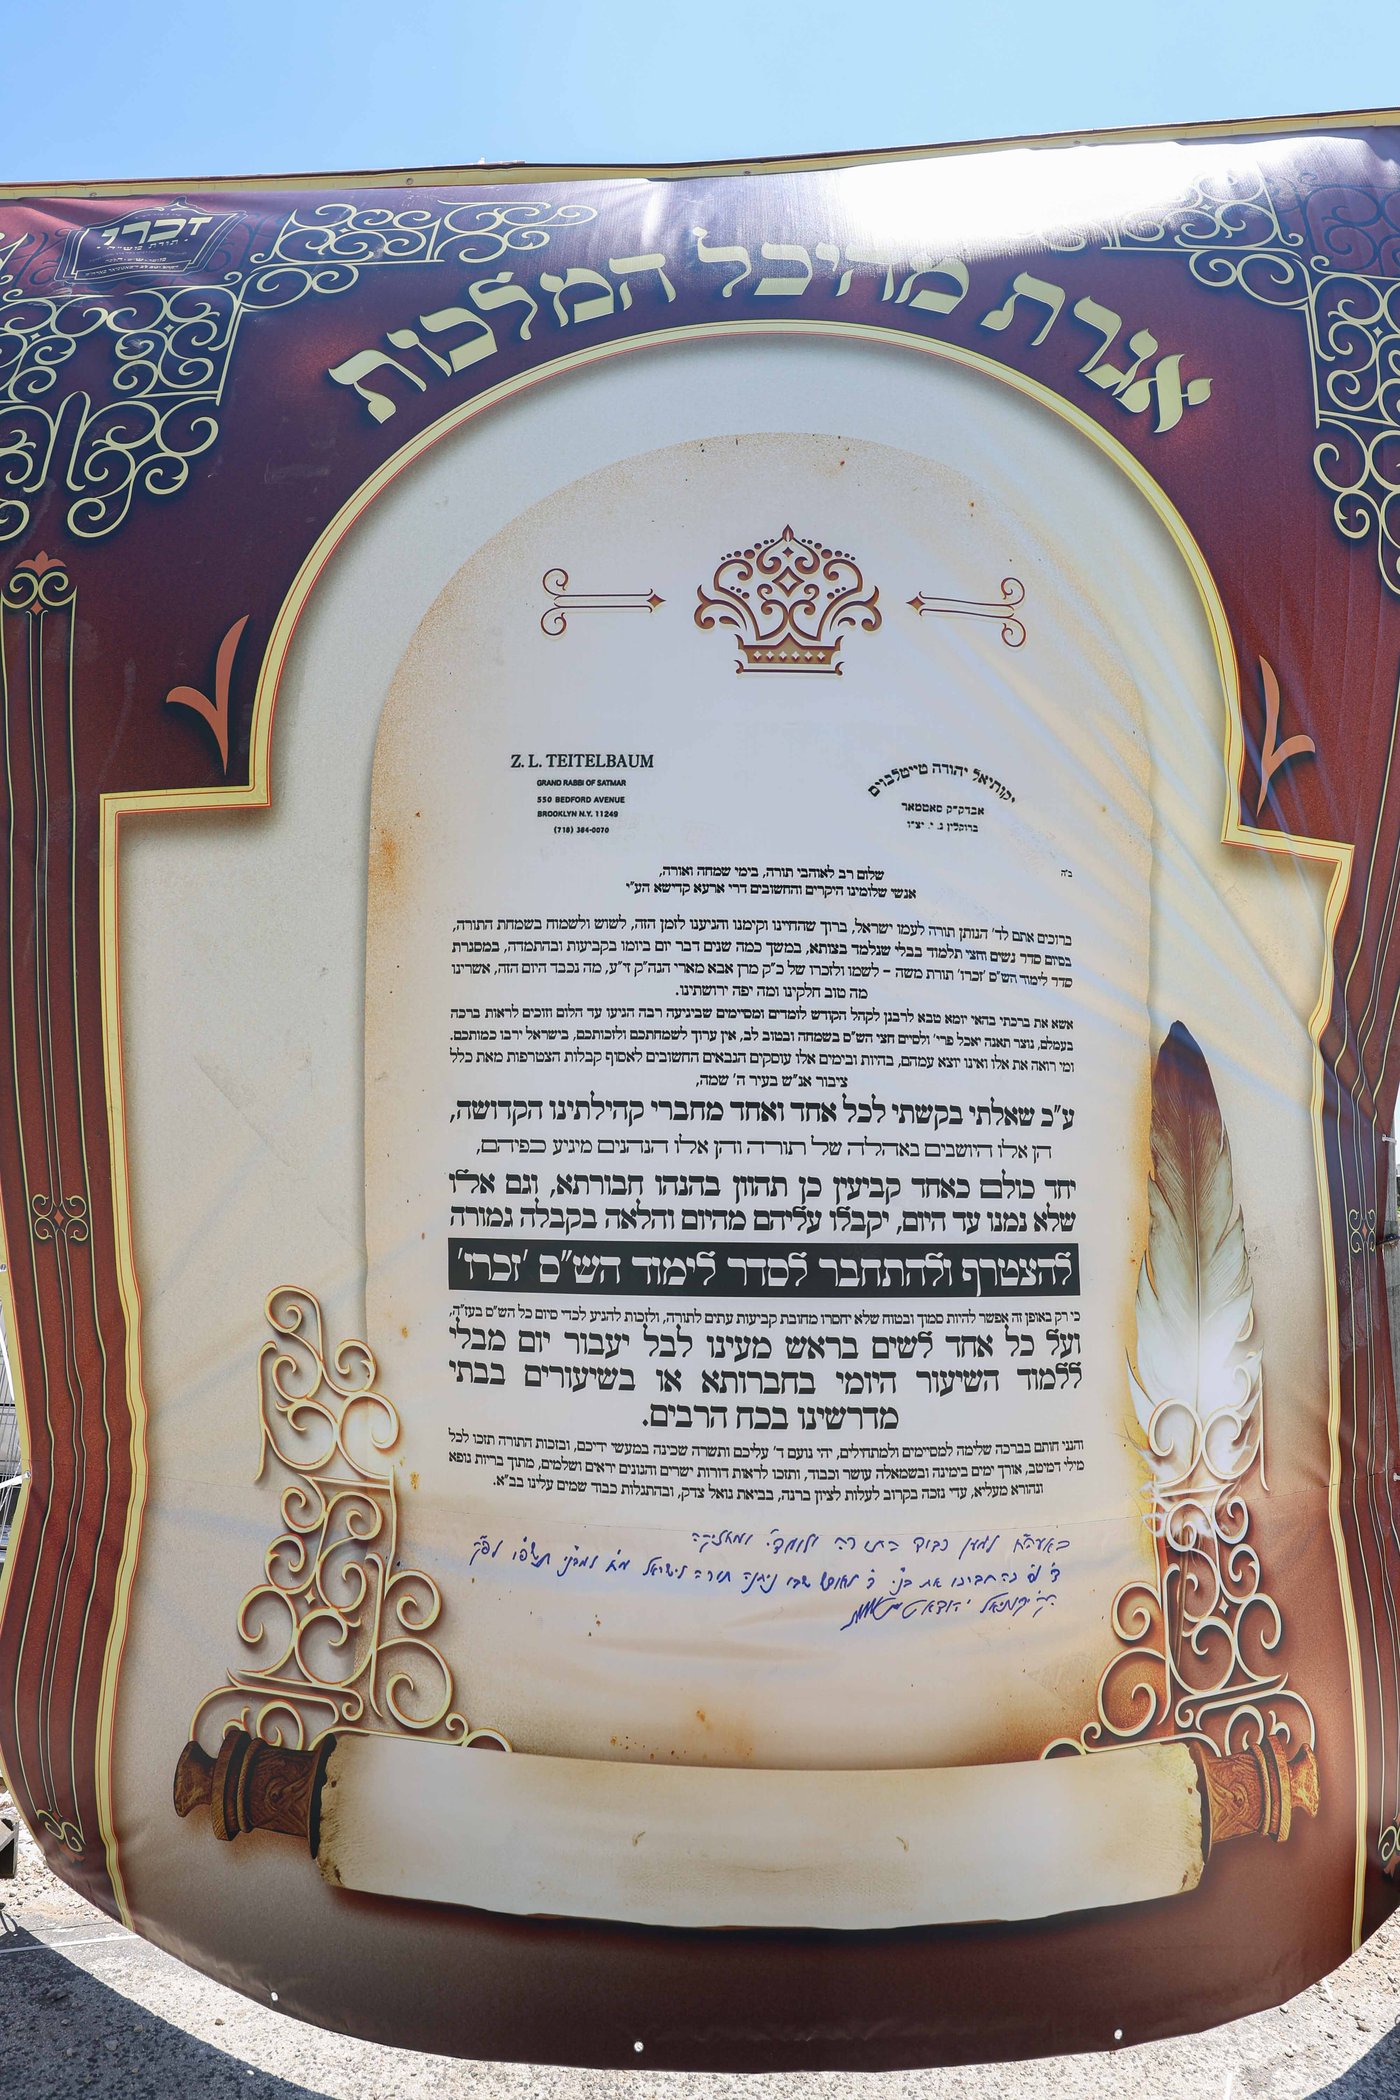 זכרו
תורת משה
אגרת מהיכל המלכות
Z. L. TEITELBAUM
GRAND RABBI OF SATMAR
550 BEDFORD AVENUE
BROOKLYN N.Y. 11249
(718) 384-0070
יקותיאל יהודה טייטלבוים
אבדק״ק סאטמאר
ברוקלין נ. י. יצ״ו
ב״ה
שלום רב לאוהבי תורה, בימי שמחה ואורה,
אנשי שלומינו היקרים והחשובים דרי ארעא קדישא הע״י
ברוכים אתם לד׳ הנותן תורה לעמו ישראל, ברוך שהחיינו וקימנו והגיענו לזמן הזה, לשוש ולשמוח בשמחת התורה,
בסיום סדר נשים וחצי תלמוד בבלי שנלמד בצוותא, במשך כמה שנים דבר יום ביומו בקביעות ובהתמדה, במסגרת
סדר לימוד הש״ס ׳זכרו׳ תורת משה – לשמו ולזכרו של כ״ק מרן אבא מארי הגה״ק זי״ע, מה נכבד היום הזה, אשרינו
מה טוב חלקינו ומה יפה ירושתינו.
אשא את ברכתי בהאי יומא טבא לרבנן לקהל הקודש לומדים ומסיימים שביגיעה רבה הגיעו עד הלום וזוכים לראות ברכה
בעמלם, נוצר תאנה יאכל פרי׳ ולסיים חצי הש״ס בשמחה ובטוב לב, אין ערוך לשמחתכם ולזכותכם, בישראל ירבו כמותכם.
ומי רואה את אלו ואינו יוצא עמהם, בהיות ובימים אלו עוסקים הגבאים החשובים לאסוף קבלות הצטרפות מאת כלל
ציבור אנ״ש בעיר ה׳ שמה,
ע״כ שאלתי בקשתי לכל אחד ואחד מחברי קהילתינו הקדושה,
הן אלו היושבים באהלה של תורה והן אלו הנהנים מיגיע כפיהם,
יחד כולם כאחד קביעין כן תהוון בהנהו חבורתא, וגם אלו
שלא נמנו עד היום, יקבלו עליהם מהיום והלאה בקבלה גמורה
להצטרף ולהתחבר לסדר לימוד הש״ס ׳זכרו׳
כי רק באופן זה אפשר להיות סמוך ובטוח שלא יחסרו מחובת קביעות עתים לתורה, ולזכות להגיע לכדי סיום כל הש״ס בעז״ה,
ועל כל אחד לשים בראש מעינו לבל יעבור יום מבלי
ללמוד השיעור היומי בחברותא או בשיעורים בבתי
מדרשינו בכח הרבים.
והנני חותם בברכה שלימה למסיימים ולמתחילים, יהי נועם ד׳ עליכם ותשרה שכינה במעשי ידיכם, ובזכות התורה תזכו לכל
מילי דמיטב, אורך ימים בימינה ובשמאלה עושר וכבוד, ותזכו לראות דורות ישרים והגונים יראים ושלמים, מתוך בריות גופא
ונהורא מעליא, עדי נזכה בקרוב לעלות לציון ברנה, בביאת גואל צדק, ובהתגלות כבוד שמים עלינו בב״א.
למען כבוד התורה ולומדי׳
את בני׳ שבו ניתנה תורה לישראל
יקותיאל יהודא